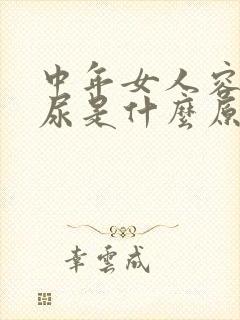 中年女人容
尿是什麼原
幸雲成